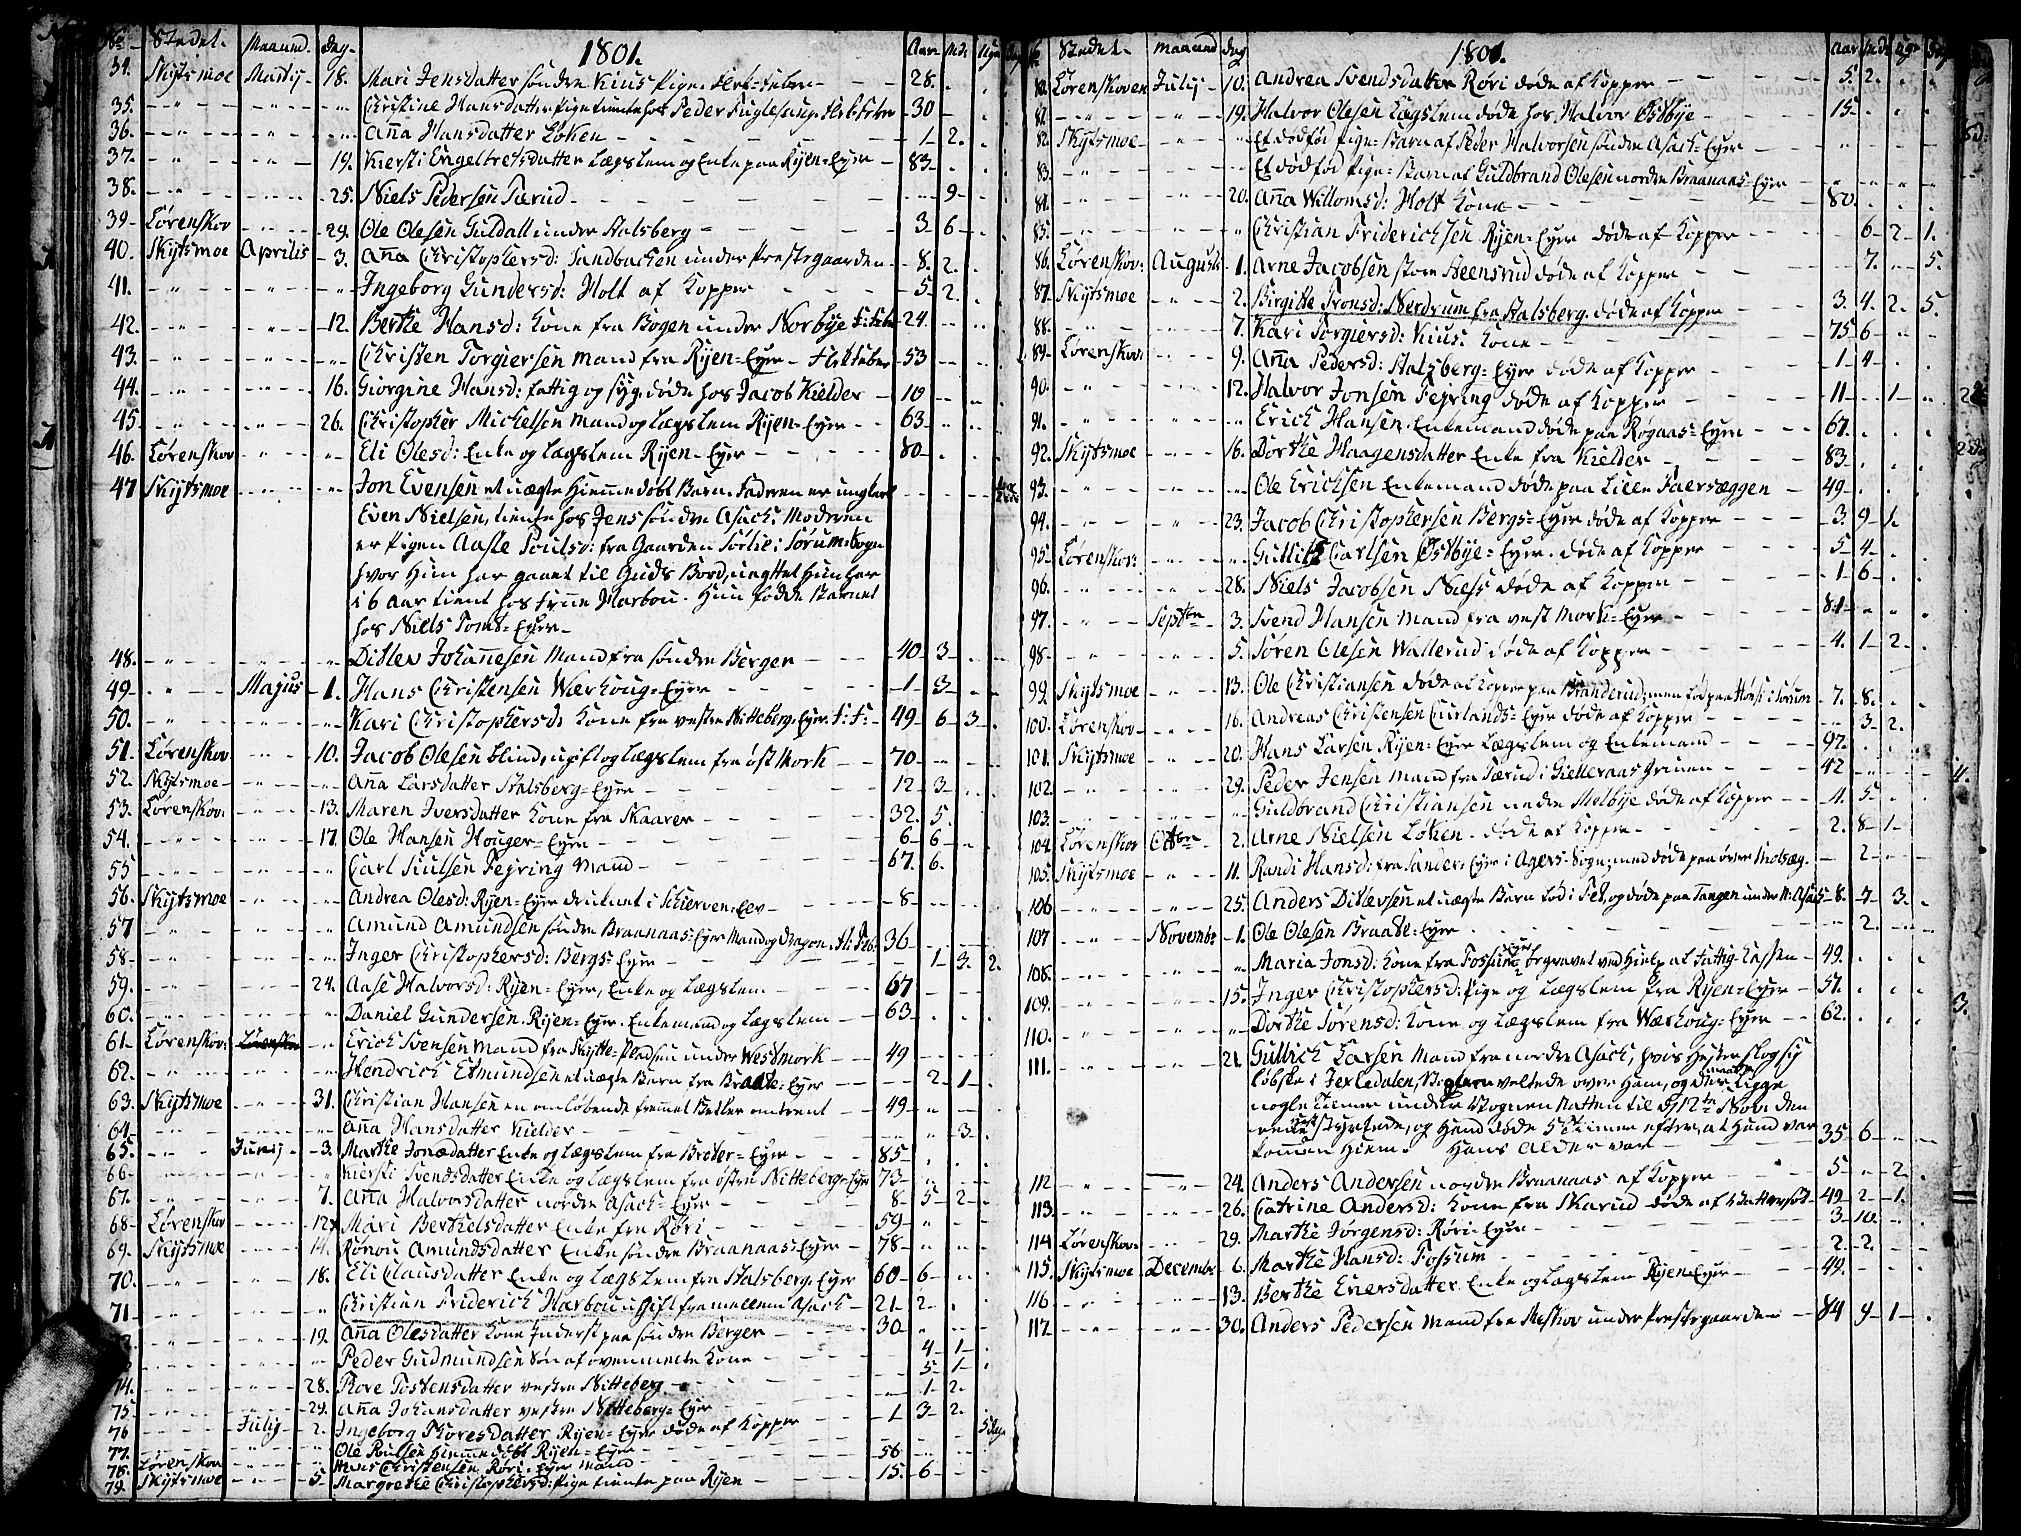 No. Stedet. Maaned. dag. 1801. Aar. Md. Uge
34. Skytsmoe Martij 18. Mari Jensdatter søndre Kius Pige. 28.
35. Christine Hansdatter Pige tiente hos Peder Fuglesang. 30
36. Anna Hansdatter Løken 1 2.
37. 19. Kiersti Engelbretsdatter Lægslem og Enke paa Ryen-Eyer 83
38. 25. Niels Pedersen Tærud 9
39 Lørenskov 29. Ole Olesen Guldall under Stalsberg 3 6
40. Skytsmoe Aprilis 3. Anna Christophersd: Sandbacken under Prestegaarden 8. 2.
41. Ingeborg Gundersd: Holt af Kopper 5 2.
42. 12. Berthe Hansd: Kone fra Bogen under Norbye 24.
43. Christen Torgiersen Mand fra Ryen-Eyer 53
44. 16. Giorgine Hansd: fattig og syg. døde hos Jacob Kielder 10
45 26. Christopher Michelsen Mand og Lægslem Ryen-Eyer 63
46. Lørenskov Eli Olesd: Enke og Lægslem Ryen-Eyer 80
47 Skytsmoe Jon Evensen et uægte Hiemmedøbt Barn. Faderen er ungkarl
Even Nielsen, tiente hos Jens søndre Asach: Moderen
er Pigen Aasle Poulsd: fra Gaarden Sørlie i Sørum-Sogn
hvor Hun har gaaet til Guds Bord, uagtet Hun har
i 6 Aar tient hos Harbou. Hun fødde Barnet
hos Niels Toms-Eyer
48. Ditlev Johannesen Mand fra søndre Berger 40 3
49 Majus 1. Hans Christensen Wærhoug-Eyer 1 3
50. Kari Christophersd: Kone fra vestre Nitteberg-Eyer 49 6 3
51. Lørenskov 10. Jacob Olesen blind, ugift og Lægslem fra øst Mork 70
52. Skytsmoe Anna Larsdatter Stalsberg-Eyer 12 3
53. Lørenskov: 13. Maren Iversdatter Kone fra Skaarer 32. 5.
54. 17. Ole Hansen Houger-Eyer 6 6
55 Carl Juulsen Fejring Mand 67. 6.
56. Skytsmoe Andrea Olesd: Ryen-Eyer druknet i Schierven-Elv 8
57 Amund Amundsen søndre Braanaas-Eyer Mand og Dragon 36
58 Inger Christophersd: Bergs-Eyer 1 3. 2.
59. 24. Aase Halvorsd: Ryen-Eyer, Enke og Lægslem 67
60. Daniel Gundersen Ryen-Eyer. Enkemand og Lægslem 63
61 Lørenskov: Erich Svensen Mand fra Skytte-Pladsen under Westmork 49
62. Hendrich Edmundsen et uægte Barn fra Braate-Eyer 2 1
63. Skytsmoe 31. Christian Hansen en omløbende fremmet Betler omtrent 49
64 Anna Hansdatter Kielder 3
65. Junij 3. Marthe Jonsdatter Enke og Lægslem fra Broter-Eyer 85
66 Kiersti Svendsdatter Enke og Lægslem fra østre Nitteberg-Eyer 73
67. 7. Anna Halvorsdatter nordre Asach-Eyer 8 5 2
68 Lørenskov 12. Mari Berthelsdatter Enke fra Røri 59
69. Skytsmoe 14. Rønou Amundsdatter Enke søndre Braanaas-Eyer 78
70. 18. Eli Clausdatter Enke og Lægslem fra Stalsberg-Eyer 60 6
71 Christian Friderich Harbou ugift fra mellem Asach 21 2
19. Anna Olesdatter Kone Inderst paa søndre Berger 30
Peder Gudmundsen Søn af ovenmelte Kone 4 1
74. 28. Thore Tostensdatter vestre Nitteberg 5 1
75 29. Anna Johansdatter vestre Nitteberg-Eyer 1 2.
76 Julij 2. Ingeborg Thoresdatter Ryen-Eyer døde af Kopper 1 3 2.
77. Ole Poulsen Hiemmedøbt Ryen-Eyer 5 dage
78. Lørenskov Hans Christensen Røri-Eyer Mand 56
79. Skytsmoe 5 Margrethe Christophersd: Pige tiente paa Ryen 15. 6
Stedet Maaned dag 1801. Aar Md Uge Dage
Lørenskoven Julij 10. Andrea Svendsdatter Røri døde af Kopper 5. 2.
19. Halvor Olesen Lægslem døde hos Halvor Østbye 15
82. Skytsmoe Et dødfød Pige-Barn af Peder Halvorsen søndre Asach-Eyer
83. Et dødfød Pige-Barn af Guldbrand Olesen nordre Braanaas-Eyer
84. 20. Anna Willomsd: Holt Kone 80.
85. Christian Friderichsen Ryen-Eyer døde af Kopper 6 2 1.
86. Lørenskov: Augusti 1. Arne Jacobsen store Steensrud døde af Kopper 7. 5.
87. Skytsmoe 2. Birgitte Tronsd: Nerdrum fra Stalsberg. døde af Kopper 3. 4. 2 5.
88. 7. Kari Torgiersd: Kius: Kone 75 6
89 Lørenskov: 9. Anna Pedersd: Stalsberg-Eyer døde af Kopper 1 4
90. 12. Halvor Jonsen Fejring døde af Kopper 11 1
91. Erich Hansen Enkemand døde paa Røgaas-Eyer 67.
92. Skytsmoe 16. Dorthe Haagensdatter Enke fra Kielder 83
93. Ole Erichsen Enkemand døde paa Lieen Faersæggen 49
94. 23. Jacob Christophersen Bergs-Eyer døde af Kopper 3. 9 1.
95 Lørenskov: Carlsen Østbye-Eyer. døde af Kopper 5 4
96. 28. Niels Jacobsen Niels døde af Kopper 1 6
97. Septbr 3. Svend Hansen Mand fra vest Mork-Eyer 81
98. 5. Søren Olesen Wallerud døde af Kopper 4. 1 2.
99. Skytsmoe 13. Ole Christiansen døde af Kopper paa Branderud, men fød paa i Sørum 7. 8.
100. Lørenskov 16. Andreas Christensen Curlands-Eyer døde af Kopper 3 2
101. Skytsmoe 20. Hans Larsen Ryen-Eyer Lægslem og Enkemand 97.
102. 29. Peder Jensen Mand fra Tærud i Gielleraas Gruen 42
103. Guldbrand Christiansen nedre Melbye døde af Kopper 4. 5
104 Lørenskov Octbr 2. Arne Nielsen Løken. døde af Kopper 2. 8 1
105. Skytsmoe 11. Randi Hansd: fra Sander-Eyer i Agers-Sogn, men døde paa 2
106 25. Anders Ditlevsen et uægte Barn fød i Fet, og døde paa Tangen under N: Asach 8. 7 3.
107 Novembr 1. Ole Olesen Braate-Eyer 2.
108. Maria Jonsd: Kone fra Fossum Eyer begravet ved Hielp af Fattig-Cassen 49.
109. 15. Inger Christophersd: Pige og Lægslem fra Ryen-Eyer 57.
110. Dorthe Sørensd: Kone og Lægslem fra Wærhoug-Eyer 62.
111. 21. Gullich Larsen Mand fra nordre Asach, hvis Hester slog sig
løbske i Jexledalen, Vognen veltede over Ham, og der maatte Ligge
nogle Timer under Vognen Natten til d: 12te Nov: den
styrtede, og Hand døde 5 Timer efter at Hand var
kommen Hiem. Hans Alder var 35 6
112 24. Anders Andersen nordre Braanaas af Kopper 5 2
113. 26. Catrine Andersd: Kone fra Skarud døde af 49 2 1.
114 Lørenskov: 29. Marthe Jørgensd: Røri Eyer 3 10.
115. Skytsmoe Decembr 6. Marthe Hansd: Fossum 2. 2.
116 13. Berthe Enersdatter Enke og Lægslem Ryen-Eyer 49.
117 30. Anders Pedersen Mand fra Moskov under Prestegaarden 84 9 1